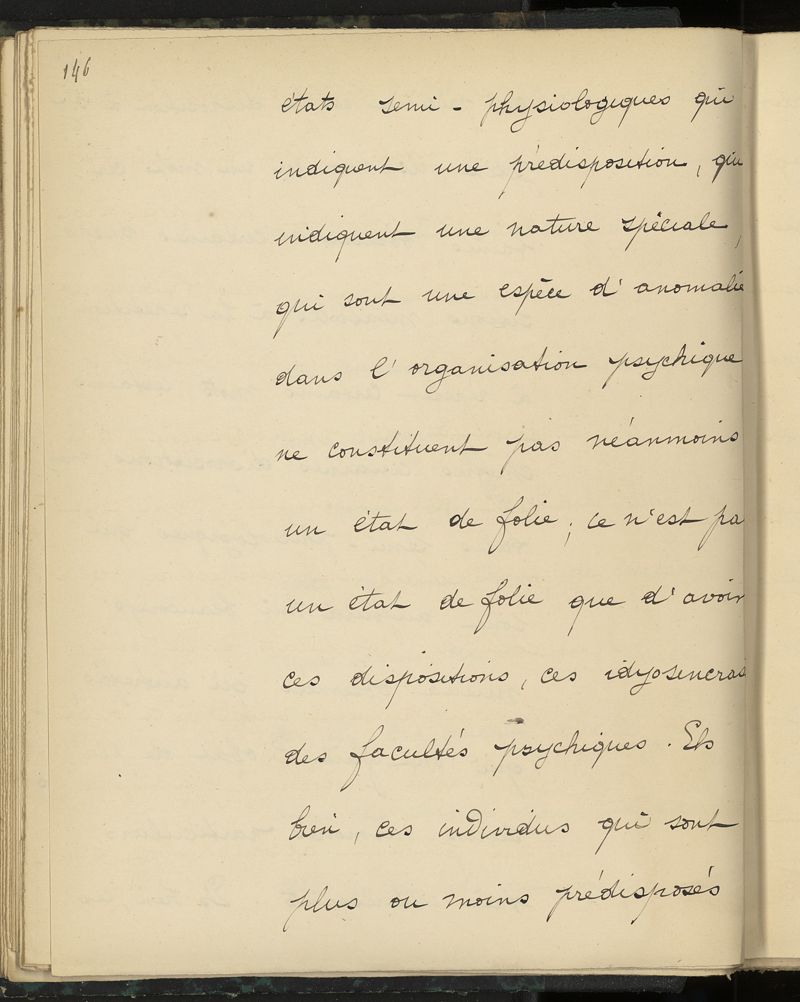 146
états semi-physiologiques qui
indiquent une prédisposition, qui
indiquent une nature spéciale,
qui sont une espèce d'anomalie
dans l'organisation psychique
ne constituent pas néanmoins
un état de folie; ce n'est pa
un état de folie que d'avoir
ces dispositions, ces idyosencras
des facultés psychiques. Eh
bien, ces individus qui sont
plus ou moins prédisposés